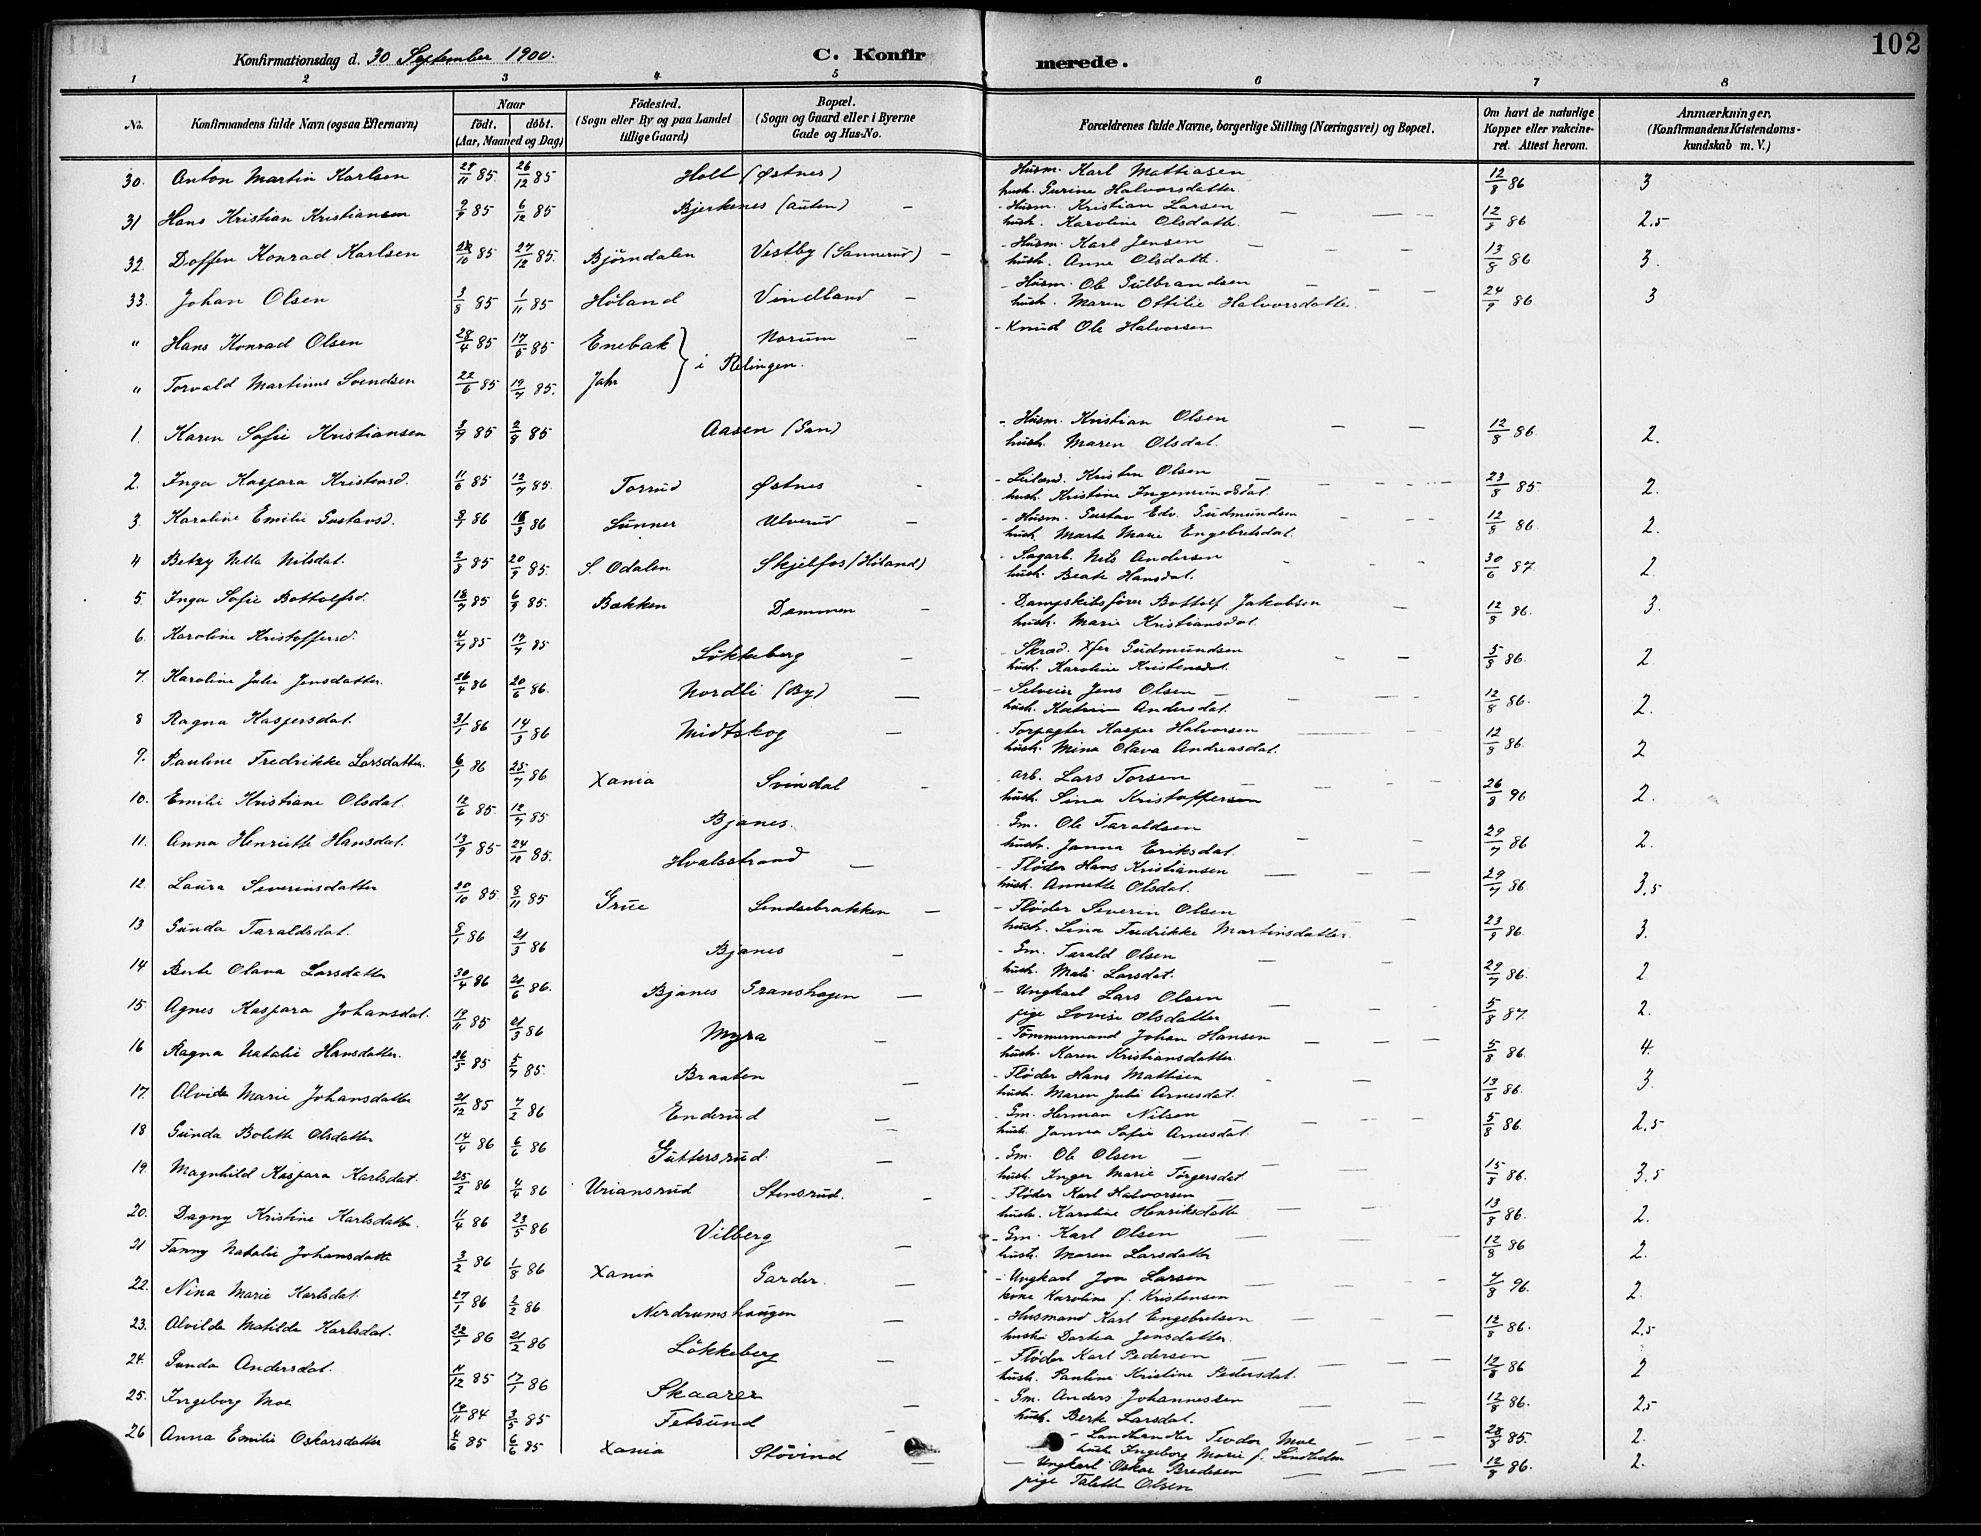 102
Konfirmationsdag d. 30 September 1900. C. Konfirmerede.
1 2 3 4 5 6 7 8
No. Konfirmandens fulde Navn (ogsaa Efternavn) Naar født. døbt. (Aar, Maaned og Dag) Födested. (Sogn eller By og paa Landet tillige Gaard) Bopæl. (Sogn og Gaard eller i Byerne Gade og Hus-No. Forældrenes fulde Navne, borgerlige Stilling (Næringsvei) og Bopæl. Om havt de naturlige Kopper eller vakcineret. Attest herom. Anmærkninger. (Konfirmandens Kristendomskundskab m. V.)
30. Anton Martin Karlsen 27/11 85. 26/12 85 Holt (Østnes) Husm. Karl Mattiasen hust. Gurine Halvorsdatter 12/8 86 3
31 Hans Kristian Kristiansen 9/9 85 6/12 85 Bjerkenes (auten) – Husm. Kristian Larsen hust. Karoline Olsdatt. 12/8 86 2.5
32. Doffen Konrad Karlsen 10 85 27/12 85. Björndalen Vestby (Sannerud) – Husm. Karl Jensen hust. Anne Olsdatt. 13/8 86 3.
33. Johan Olsen 3/8 85 1/11 85 Höland Vindland – Husm. Ole Gulbrandsen hust. Maren Ottilie Halvorsdatter 24/9 86 3
" Hans Konrad Olsen 28/4 85 17/5 85 Enebak Norum – Knud Ole Halvorsen
i Relingen.
" Torvald Martinus Svendsen 22/6 85 19/7 85. Jahr
1. Karen Sofie Kristiansen 8/7 85 2/8 85 Aasen (Gan) Husm. Kristian Olsen hust. Maren Olsdat. 12/8 86. 2.
2. Inga Kaspara Kristensd. 11/6 85 12/7 85. Torrud Østnes Leiland. Kristen Olsen hust. Kristine Ingemundsdat 23/8 85. 2.
3. Karoline Emilie Gustavsd. 86 86 Lunner Ulverud – Husm. Gustav Edv. Gudmundsen hust. Marte Marie Engebretsdat. 12/8 86. 2.
4 Betzy Nella Nilsdat. 2/8 85 20/9 85. S. Odalen Skjelfos (Höland) Sagarb. Nils Andersen hust. Beate Hansdat. 30/6 87. 2.
5. Inga Sofie Bottolfsd. 18/7 85 6/9 85. Bakken Dammen – Dampskibsfører Bottolf Jakobsen hust. Marie Kristiansdat. 12/8 86. 3.
6. Karoline Kristoffersd. 4/7 85 19/7 85 Løkkeberg – Skræd. Xfer Gudmundsen hust. Karoline Kristensdat. 5/8 86. 2
7. Karoline Julie Jensdatter. 26/4 86 20/6 86. Nordli (By) – Selveier Jens Olsen hust. Katrine Andersdat. 12/8 86. 2.
8 Ragna Kaspersdat. 31/1 86 14/3 86 Midtskog – Forpagter Kasper Halvorsen hust. Mina Olava Andreasdat. 12/8 86. 2
9. Pauline Fredrikke Larsdatter. 6/1 86 25/7 86 Xania Svindal – arb. Lars Torsen hust. Lina Kristofferson 26/8 96 2.
10. Emilie Kristiane Olsdat. 12/6 85. 12/7 85 Bjanes. Gm. Ole Taraldsen hustr. Janna Eriksdat. 29/7 86 2.
11. Anna Henriette Hansdat. 13/9 85 24/10 85. Hvalsstrand – Fløder Hans Kristiansen hust. Annette Olsdat. 29/7 86. 3.5
12. Laura Severinsdatter 20/10 85. 8/11 85 Grue Lindsebrakken – Fløder Severin Olsen hust. Lina Fredrikke Martinsdatter. 23/9 86. 3.
13 Gunda Taraldsdat. 8/1 86 21/3 86 Bjanes – Gm. Tarald Olsen hust. Mali Larsdat. 29/7 86. 2
14 Berte Olava Larsdatter 30/4 86 20/6 86. Bjanes Granshagen – Ungkarl Lars Olsen pige Lovise Olsdatter 5/8 87. 2.
15. Agnes Kaspara Johansdat. 19/11 85 21/3 86 Myra – Tömmermand Johan Hansen hust. Karen Kristiansdatter. 5/8 86. 4.
16 Ragna Natalie Hansdatter. 26/5 85 5/7 85. Braaten – Fløder Hans Mattisen hust. Maren Julie Arnesdat. 13/8 86. 3.
17. Alvide Marie Johansdatter 21/12 85 7/2 86 Enderud – Gm. Herman Nilsen hust. Janna Sofie Arnesdat. 5/8 86. 2,5
18 Gunda Bolette Olsdatter 14/4 86 6/6 86 Guttersrud. – Gm. Ole Olsen hust. Inger Marie Torgersdat. 15/8 86. 3.5
19. Magnhild Kaspara Karlsdat. 25/2 86 4/4 86 Uriansrud Stensrud. – Fløder Karl Halvorsen hust. Karoline Henriksdatt. 13/8 86. 2.
20. Dagny Kristine Karlsdatter. 11/4 86 23/5 86 Vilberg – Gm. Karl Olsen hust. Maren Larsdatter 12/8 86 2.
21 Fanny Natalie Johansdatt. 3/2 86 1/8 86 Xania Garder. – Ungkarl Joa Larsen kone Karoline f. Kristensen 7/8 96. 2.
22. Nina Marie Karlsdat. 27/1 86 2/2 86 Nerdrumshaugen – Husmand Karl Engebretsen hustr. Dortea Jensdatter. 12/8 86. 2.5
23. Alvilde Matilde Karlsdat. 22/1 86 21/2 86 Løkkeberg – Fløder Karl Pedersen hust. Pauline Kristine Pedersdat. 12/8 86 2
24. Gunda Andersdat. 11/12 85 17/1 86 Skaarer – Gm. Anders Johannessen hust. Berte Larsdat. 12/8 86. 2.5
25. Ingeborg Moe 19/11 84 3/5 85 Fetsund – Landhandler Teodor Moe hust. Ingeborg Marie f. Lindholm 28/8 85. 2.
26 Anna Emilie Oskarsdatter 4/6 85 6/6 85 Xania Støvind – Ungkarl Oskar Bredesen pige Talette Olsen 12/8 86. 2.